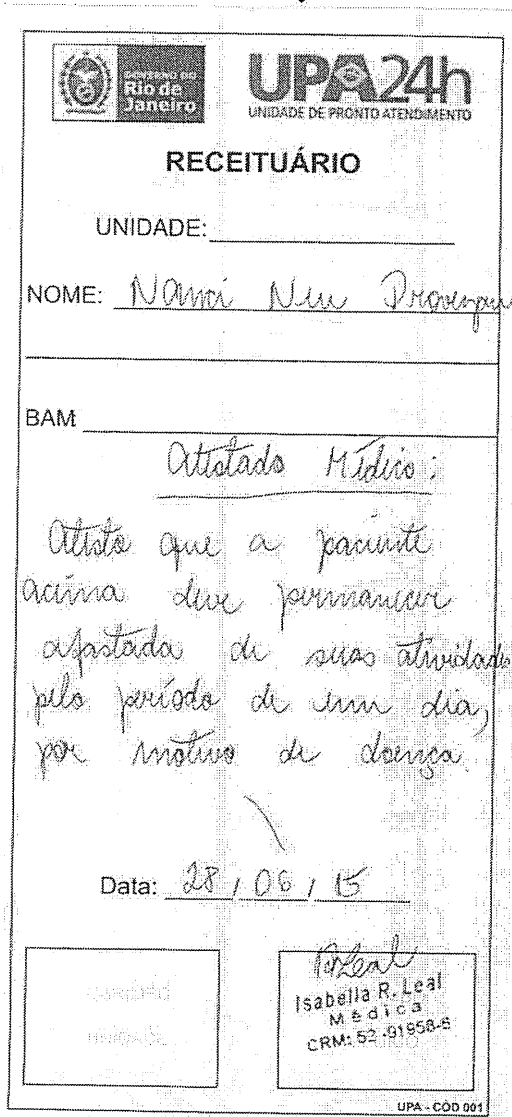 GOVERNO DO
Rio de
Janeiro
UPA 24h
UNIDADE DE PRONTO ATENDIMENTO
RECEITUÁRIO
UNIDADE:
NOME: Nanci
BAM
Atestado Médico:
Atesto que a paciente
acima deve permanecer
afastada de suas atividades
pelo período de um dia,
por motivo de doença.
Data: 28 / 06 / 15
Isabella R. Leal
Médica
CRM: 52-91958-6
UPA - COD 001